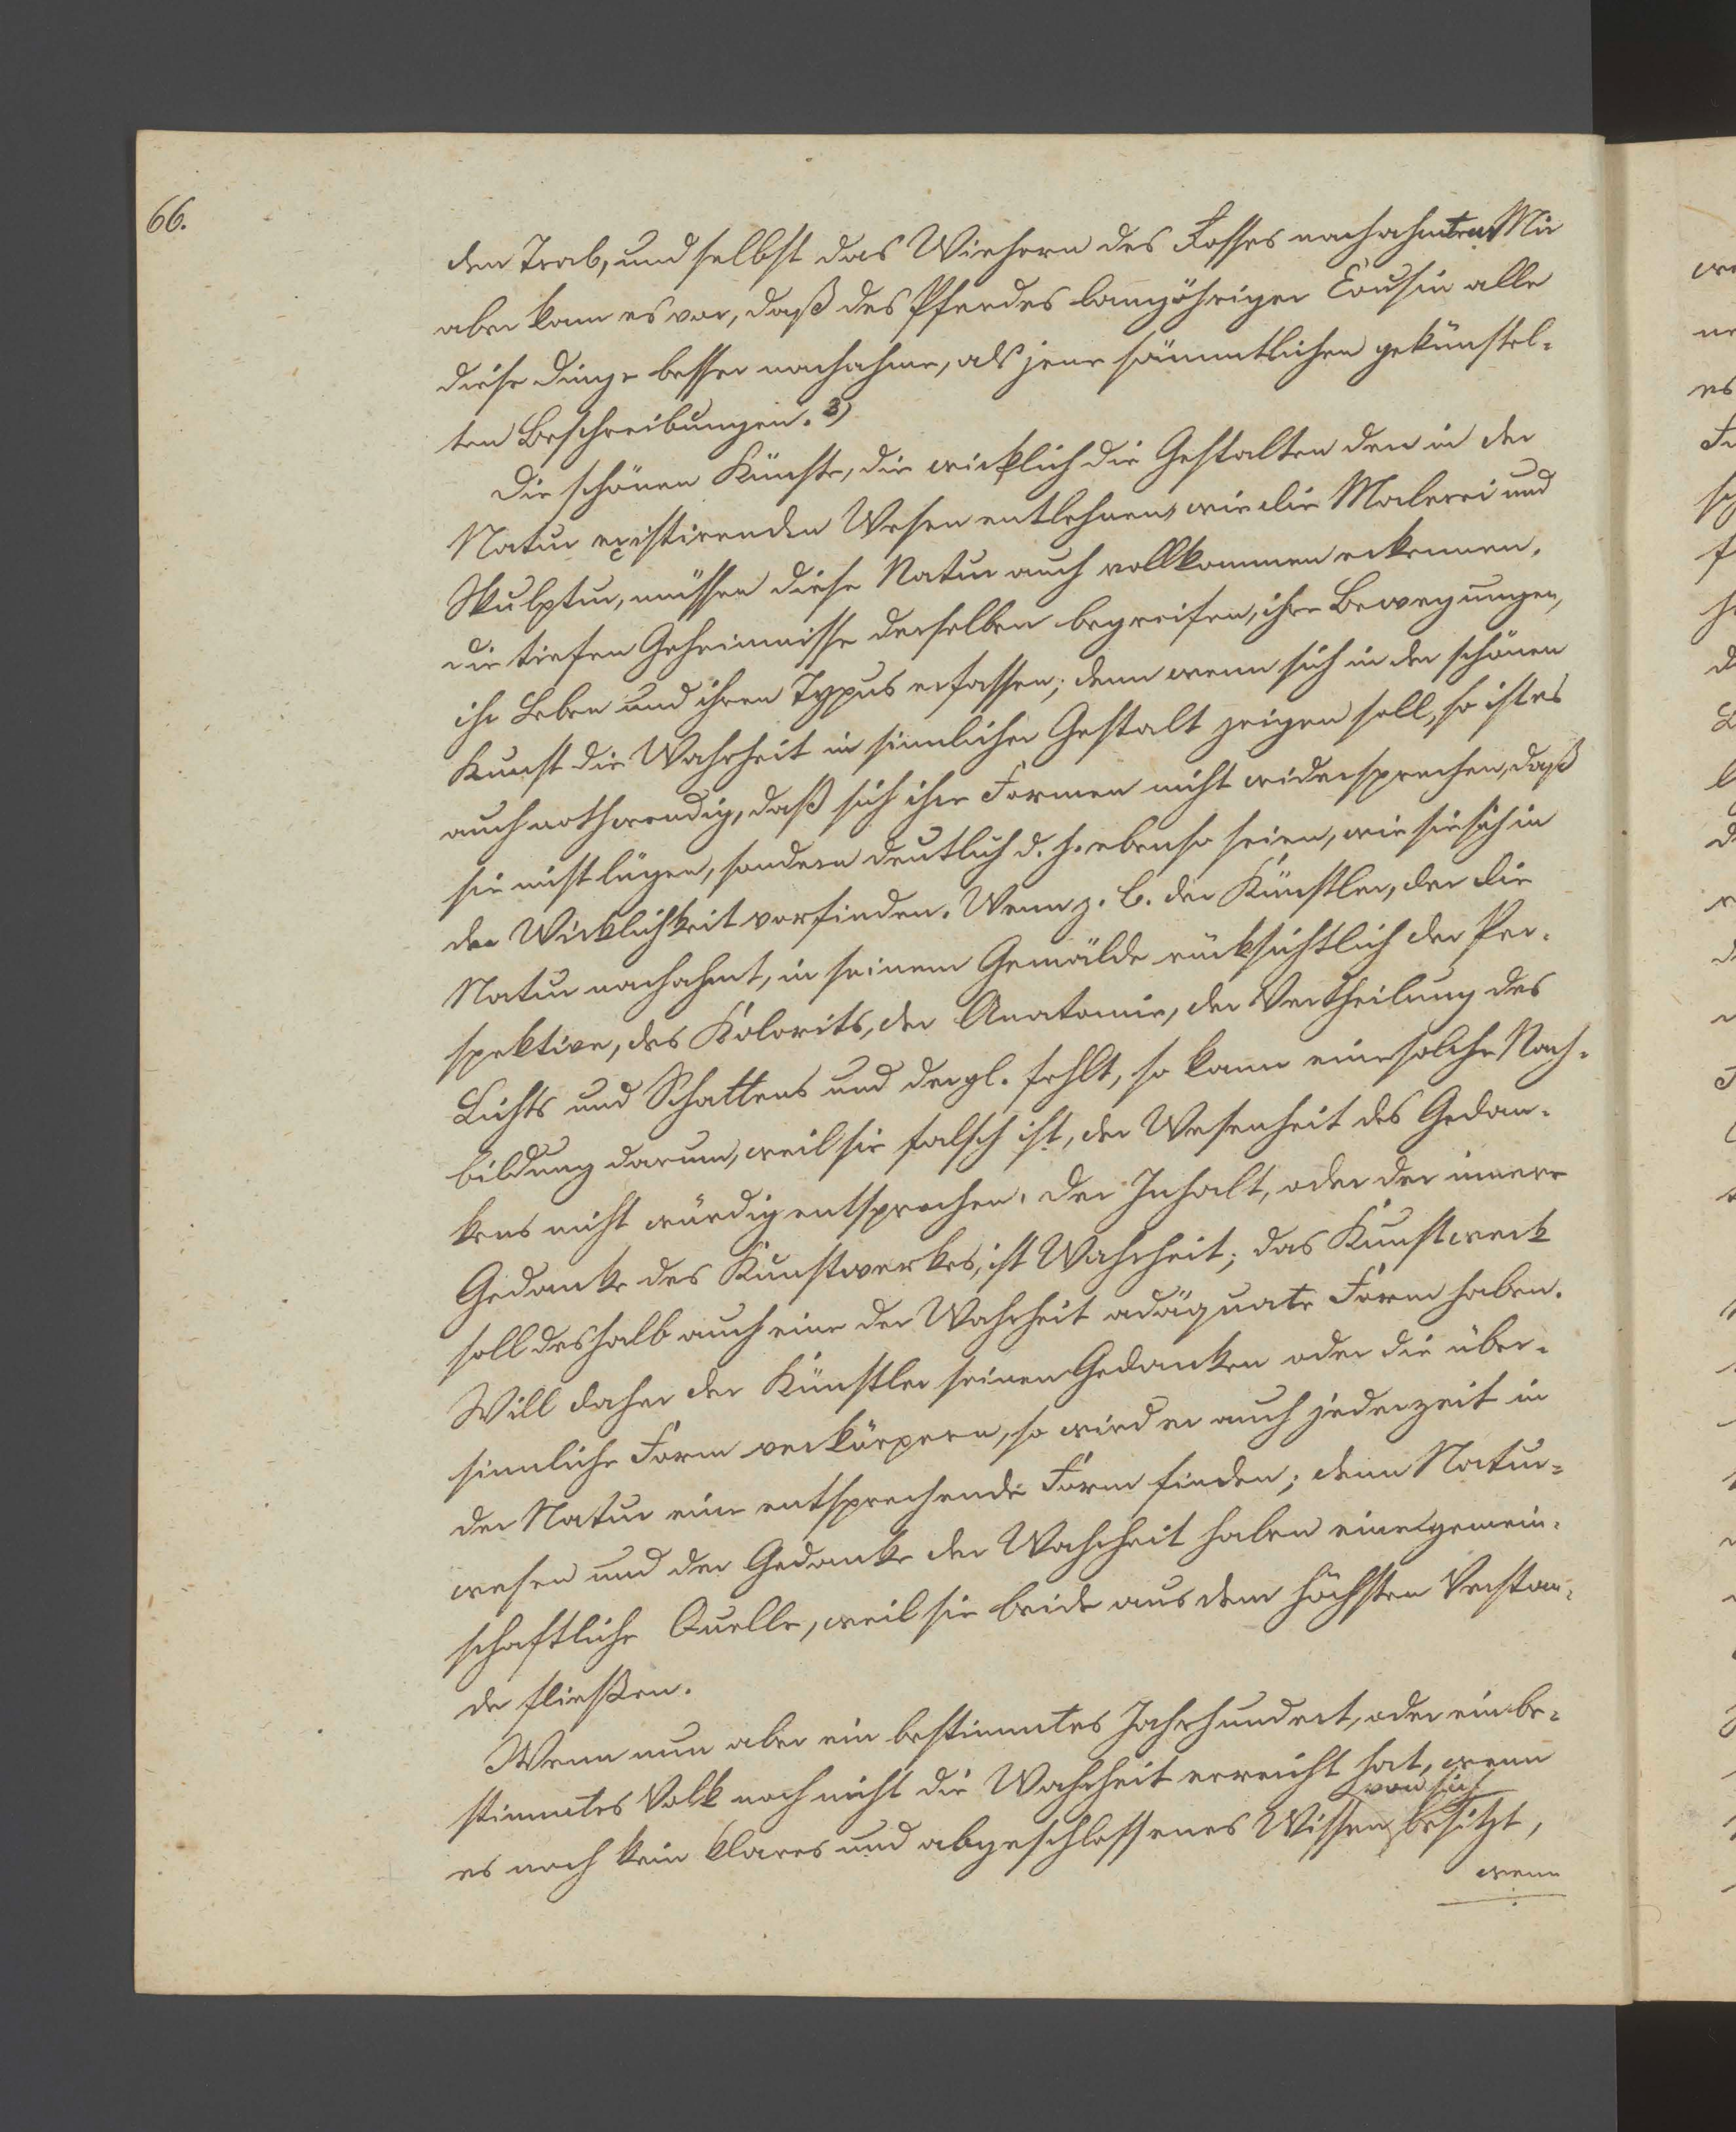 66.
den Trab, und selbst das Wiehern des Rosses nachahmten. Mir
aber kam es vor, daß des Pferdes langöhriger Cousin alle
diese Dinge besser nachahme, als jene sämmtlichen gekünstel-
ten Beschreibungen. 3)
Die schönen Künste, die wirklich die Gestalten den in der
Natur existirenden Wesen entlehnen, wie die Malerei und
Skulptur, müssen diese Natur auch vollkommen erkennen,
die tiefen Geheimnisse derselben begreifen, ihre Bewegungen,
ihr Leben und ihren Typus erfassen; denn wenn sich in der schönen
Kunst die Wahrheit in sinnlicher Gestalt zeigen soll, so ist es
auch nothwendig, daß sich ihre Formen nicht widersprechen, daß
sie nicht lügen, sondern deutlich d. h. ebenso seien, wie sie sich in
der Wirklichkeit vorfinden. Wenn z. B. der Künstler, der die
Natur nachahmt, in seinem Gemälde rücksichtlich der Per-
spektive, des Kolorits, der Anatomie, der Vertheilung des
Lichts und Schattens und dergl. fehlt, so kann eine solche Nach-
bildung darum, weil sie falsch ist, der Wesenheit des Gedan-
kens nicht würdig entsprechen. Der Inhalt, oder der innere
Gedanke des Kunstwerkes, ist Wahrheit; das Kunstwerk
soll deshalb auch eine der Wahrheit adäquate Form haben.
Will daher der Künstler seinen Gedanken oder die über-
sinnliche Form verkörpern, so wird er auch jederzeit in
der Natur eine entsprechende Form finden; denn Natur-
wesen und der Gedanke der Wahrheit haben eine gemein-
schaftliche Quelle, weil sie beide aus dem höchsten Verstan-
de fließen.
Wenn nun aber ein bestimmtes Jahrhundert, oder ein be-
stimmtes Volk noch nicht die Wahrheit erreicht hat, wenn
von sich
es noch kein klares und abgeschlossenes Wissen besitzt,
wenn